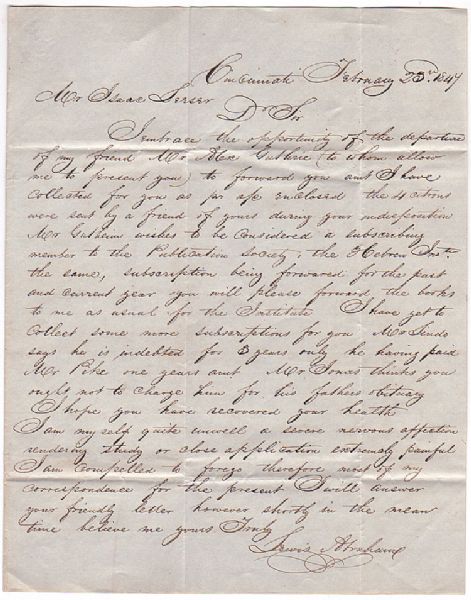 Cincinnati February 23rd 1847
Mr Isaac Leeser
Dr Sir
I embrace the opportunity of the departure
of my friend Mr Alex Guthrie (to whom allow
me to present you) to forward you amt I have
Collected for you as per a/c enclosed the 4 citrons
were sent by a friend of yours during your indisposition
Mr wishes to be Considered a subscribing
member to the Publication Society; the Hebrew Inste
the same, subscription being forwarded for the past
and current year you will please forward the books
to me as usual for the Institute I have yet to
Collect some more subscriptions for you Mr
says he is indebted for 3 years only he having paid
Mr Pike one years amt Mr Jonas thinks you
ought not to charge him for his fathers obituary
I hope you have recovered your health
I am my self quite unwell a severe nervous affection
rendering study or close application extremely painful
I am compelled to forego therefore most of my
correspondence for the present I will answer
your friendly letter however shortly in the mean
time believe me yours Truly
Lewis Abraham